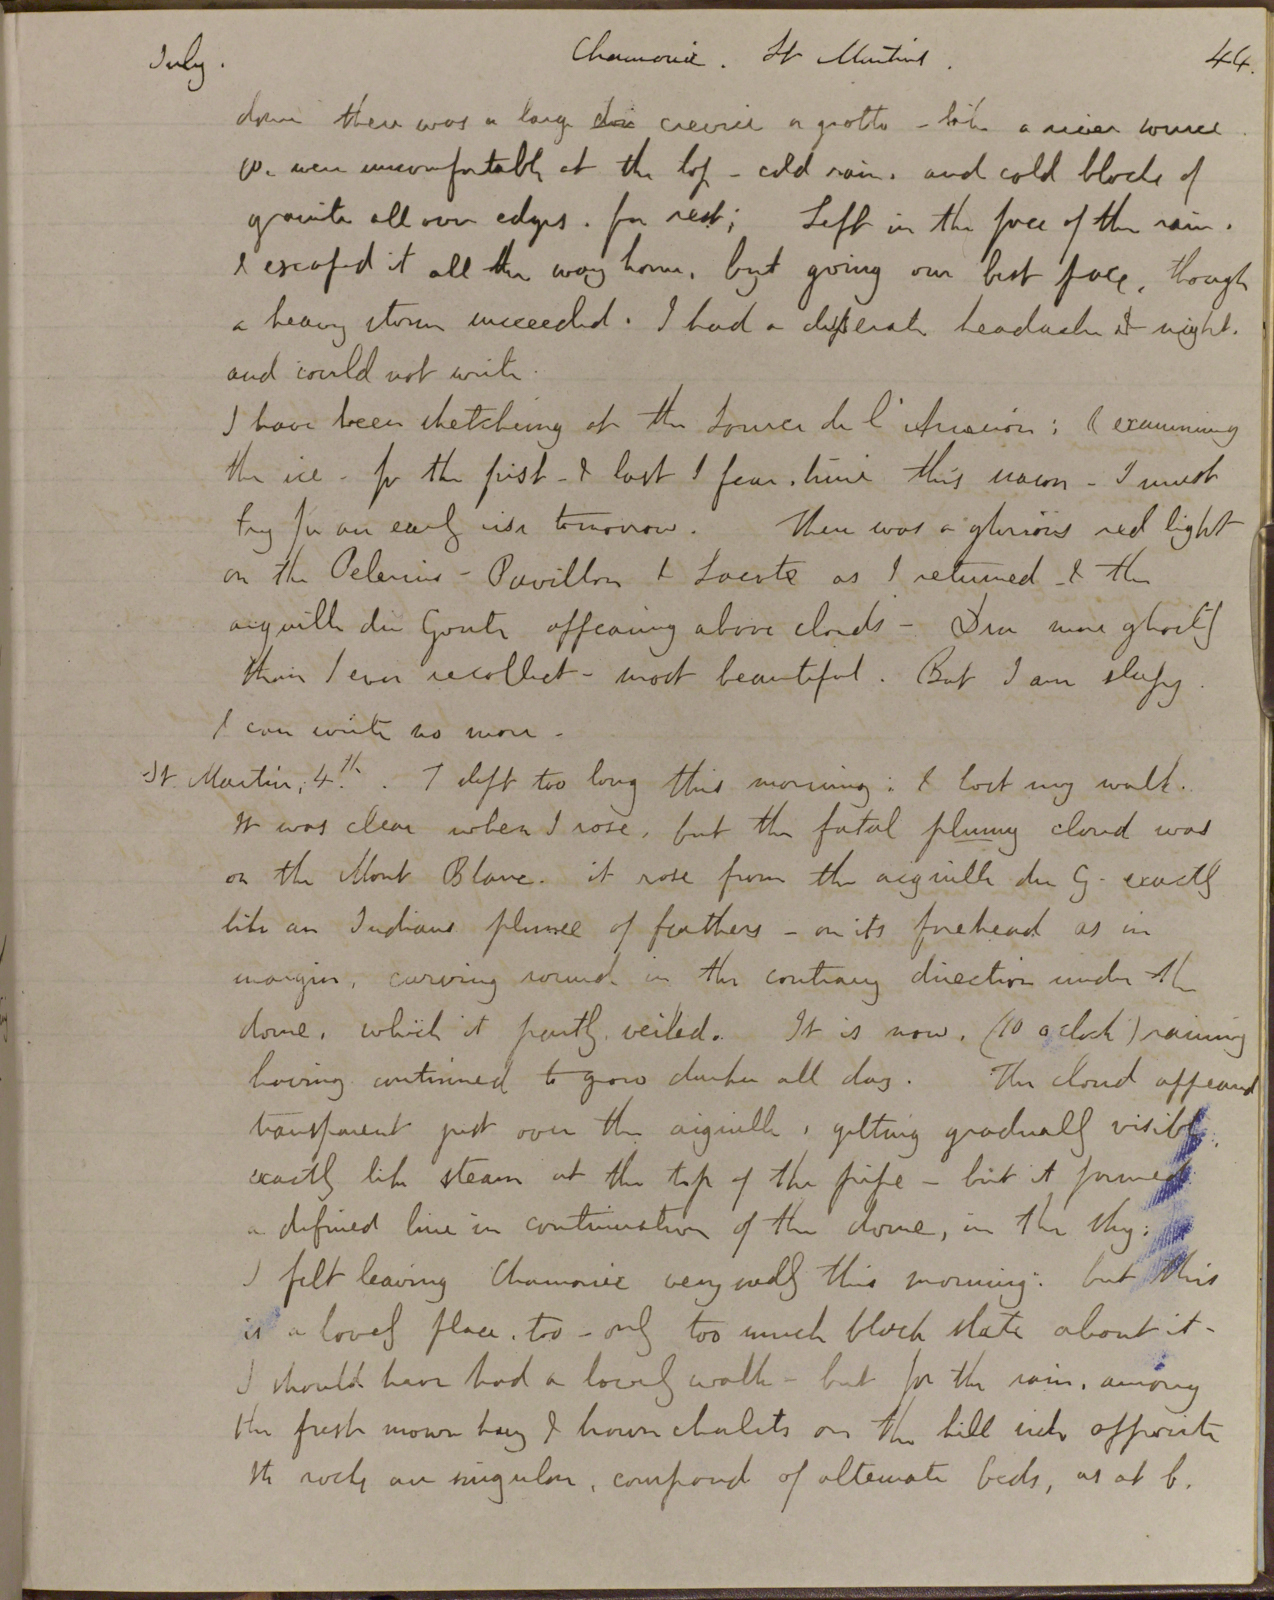 July. Chamonix. St Martins. 44.
down there was a large crevice or grotto - like a river source.
We were uncomfortable at the top - cold rain. and cold blocks of
granite all over edges. for rest; Left in the face of the rain.
& escaped it all the way home, by going our best pace, though
a heavy storm succeeded. I had a desperate headache at night.
and could not write.
I have been sketching at the Source de l'Arveron; & examining
the ice - for the first - & last I fear, time this season - I must
try for an early rise tomorrow. There was a glorious red light
on the Pelerins - Pavillon & Lacote as I returned - & the
aiguille du Gouté appearing above clouds - Dru more ghostly
than I ever recollect - most beautiful. But I am sleepy.
& can write no more -
St. Martin, 4th. I slept too long this morning; & lost my walk.
It was clear when I rose, but the fatal plumy cloud was
on the Mont Blanc. it rose from the aiguille du G. exactly
like an Indians plume of feathers - on its forehead as in
margin, curving round in the contrary direction under the
dome, which it partly veiled. It is now, (10 oclock) raining
having continued to grow darker all day. The cloud appeared
transparent just over the aiguille, getting gradually visible,
exactly like steam at the top of the pipe - but it formed
a defined line in continuation of the dome, in the sky:
I felt leaving Chamonix very sadly this morning: but this
is a lovely place, too - only too much black slate about it -
I should have had a lovely walk - but for the rain, among
the fresh mown hay & brown chalets on the hill side opposite
the rocks are singular, compound of alternate beds, as at b.